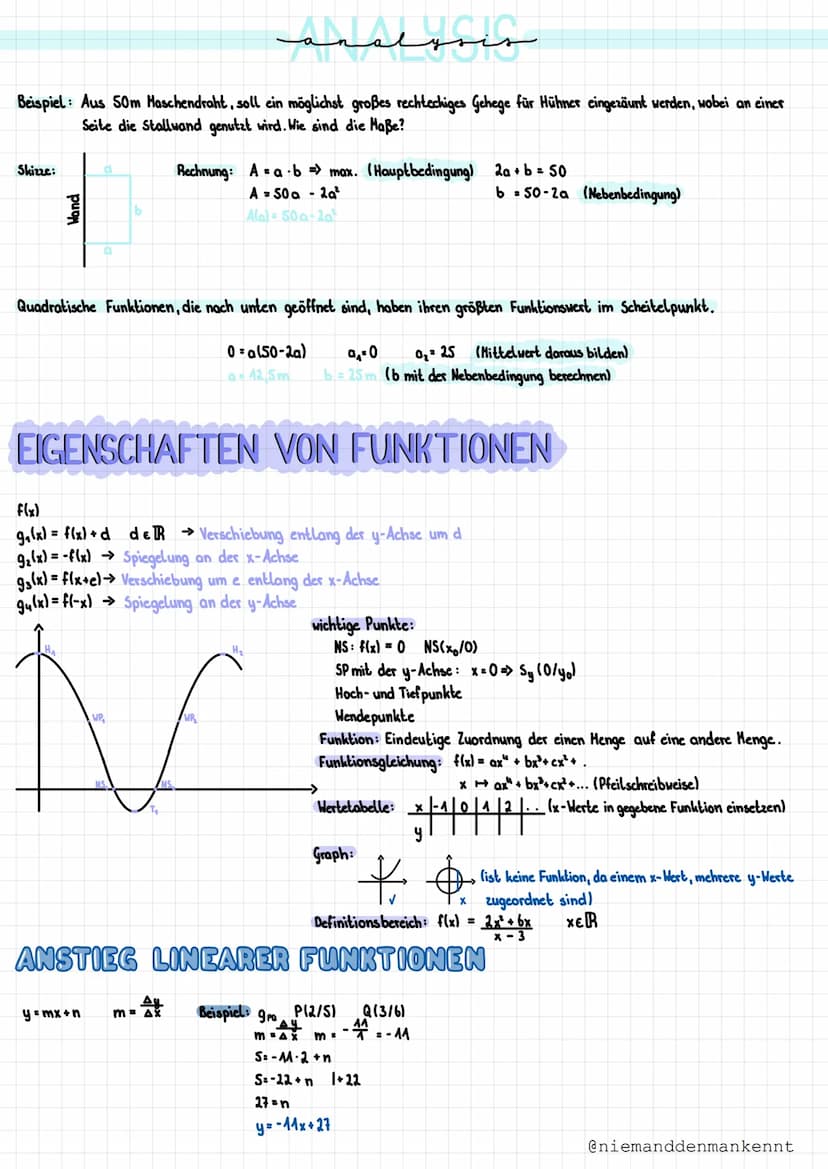 ANALYSIS
analysis
Beispiel: Aus 50m Maschendraht, soll ein möglichst großes rechteckiges Gehege für Hühner eingezäunt werden, wobei an einer
Seite die Stallwand genutzt wird. Wie sind die Maße?
Skizze:
Wand
a
b
a
Rechnung: A = a · b => max. (Hauptbedingung) 2a + b = 50
A = 50a - 2a² b = 50 - 2a (Nebenbedingung)
A(a) = 50a - 2a²
Quadratische Funktionen, die nach unten geöffnet sind, haben ihren größten Funktionswert im Scheitelpunkt.
0 = a(50-2a) a₁=0 a₂= 25 (Mittelwert daraus bilden)
a = 12,5m b = 25m (b mit der Nebenbedingung berechnen)
EIGENSCHAFTEN VON FUNKTIONEN
f(x)
g₁(x) = f(x) + d d ∈ ℝ → Verschiebung entlang der y-Achse um d
g₂(x) = -f(x) → Spiegelung an der x-Achse
g₃(x) = f(x+e) → Verschiebung um e entlang der x-Achse
g₄(x) = f(-x) → Spiegelung an der y-Achse
H₁
H₂
WP₁
WP₂
NS₁
NS₂
T₁
wichtige Punkte:
NS: f(x) = 0 NS(x₀/0)
SP mit der y-Achse: x = 0 => Sy (0/y₀)
Hoch- und Tiefpunkte
Wendepunkte
Funktion: Eindeutige Zuordnung der einen Menge auf eine andere Menge.
Funktionsgleichung: f(x) = ax⁴ + bx³ + cx² + .
x ↦ ax⁴ + bx³ + cx² + ... (Pfeilschreibweise)
Wertetabelle: x | -1 | 0 | 1 | 2 | .. (x-Werte in gegebene Funktion einsetzen)
y
Graph:
✓ x (ist keine Funktion, da einem x-Wert, mehrere y-Werte
zugeordnet sind)
Definitionsbereich: f(x) = 2x² + 6x / x - 3 x ∈ ℝ
ANSTIEG LINEARER FUNKTIONEN
y = mx + n m = Δy/Δx Beispiel: gPQ P(2/5) Q(3/6)
m = Δy/Δx m = - 11/1 = -11
5 = -11 · 2 + n
5 = -22 + n |+22
27 = n
y = -11x + 27
@niemanddenmankennt